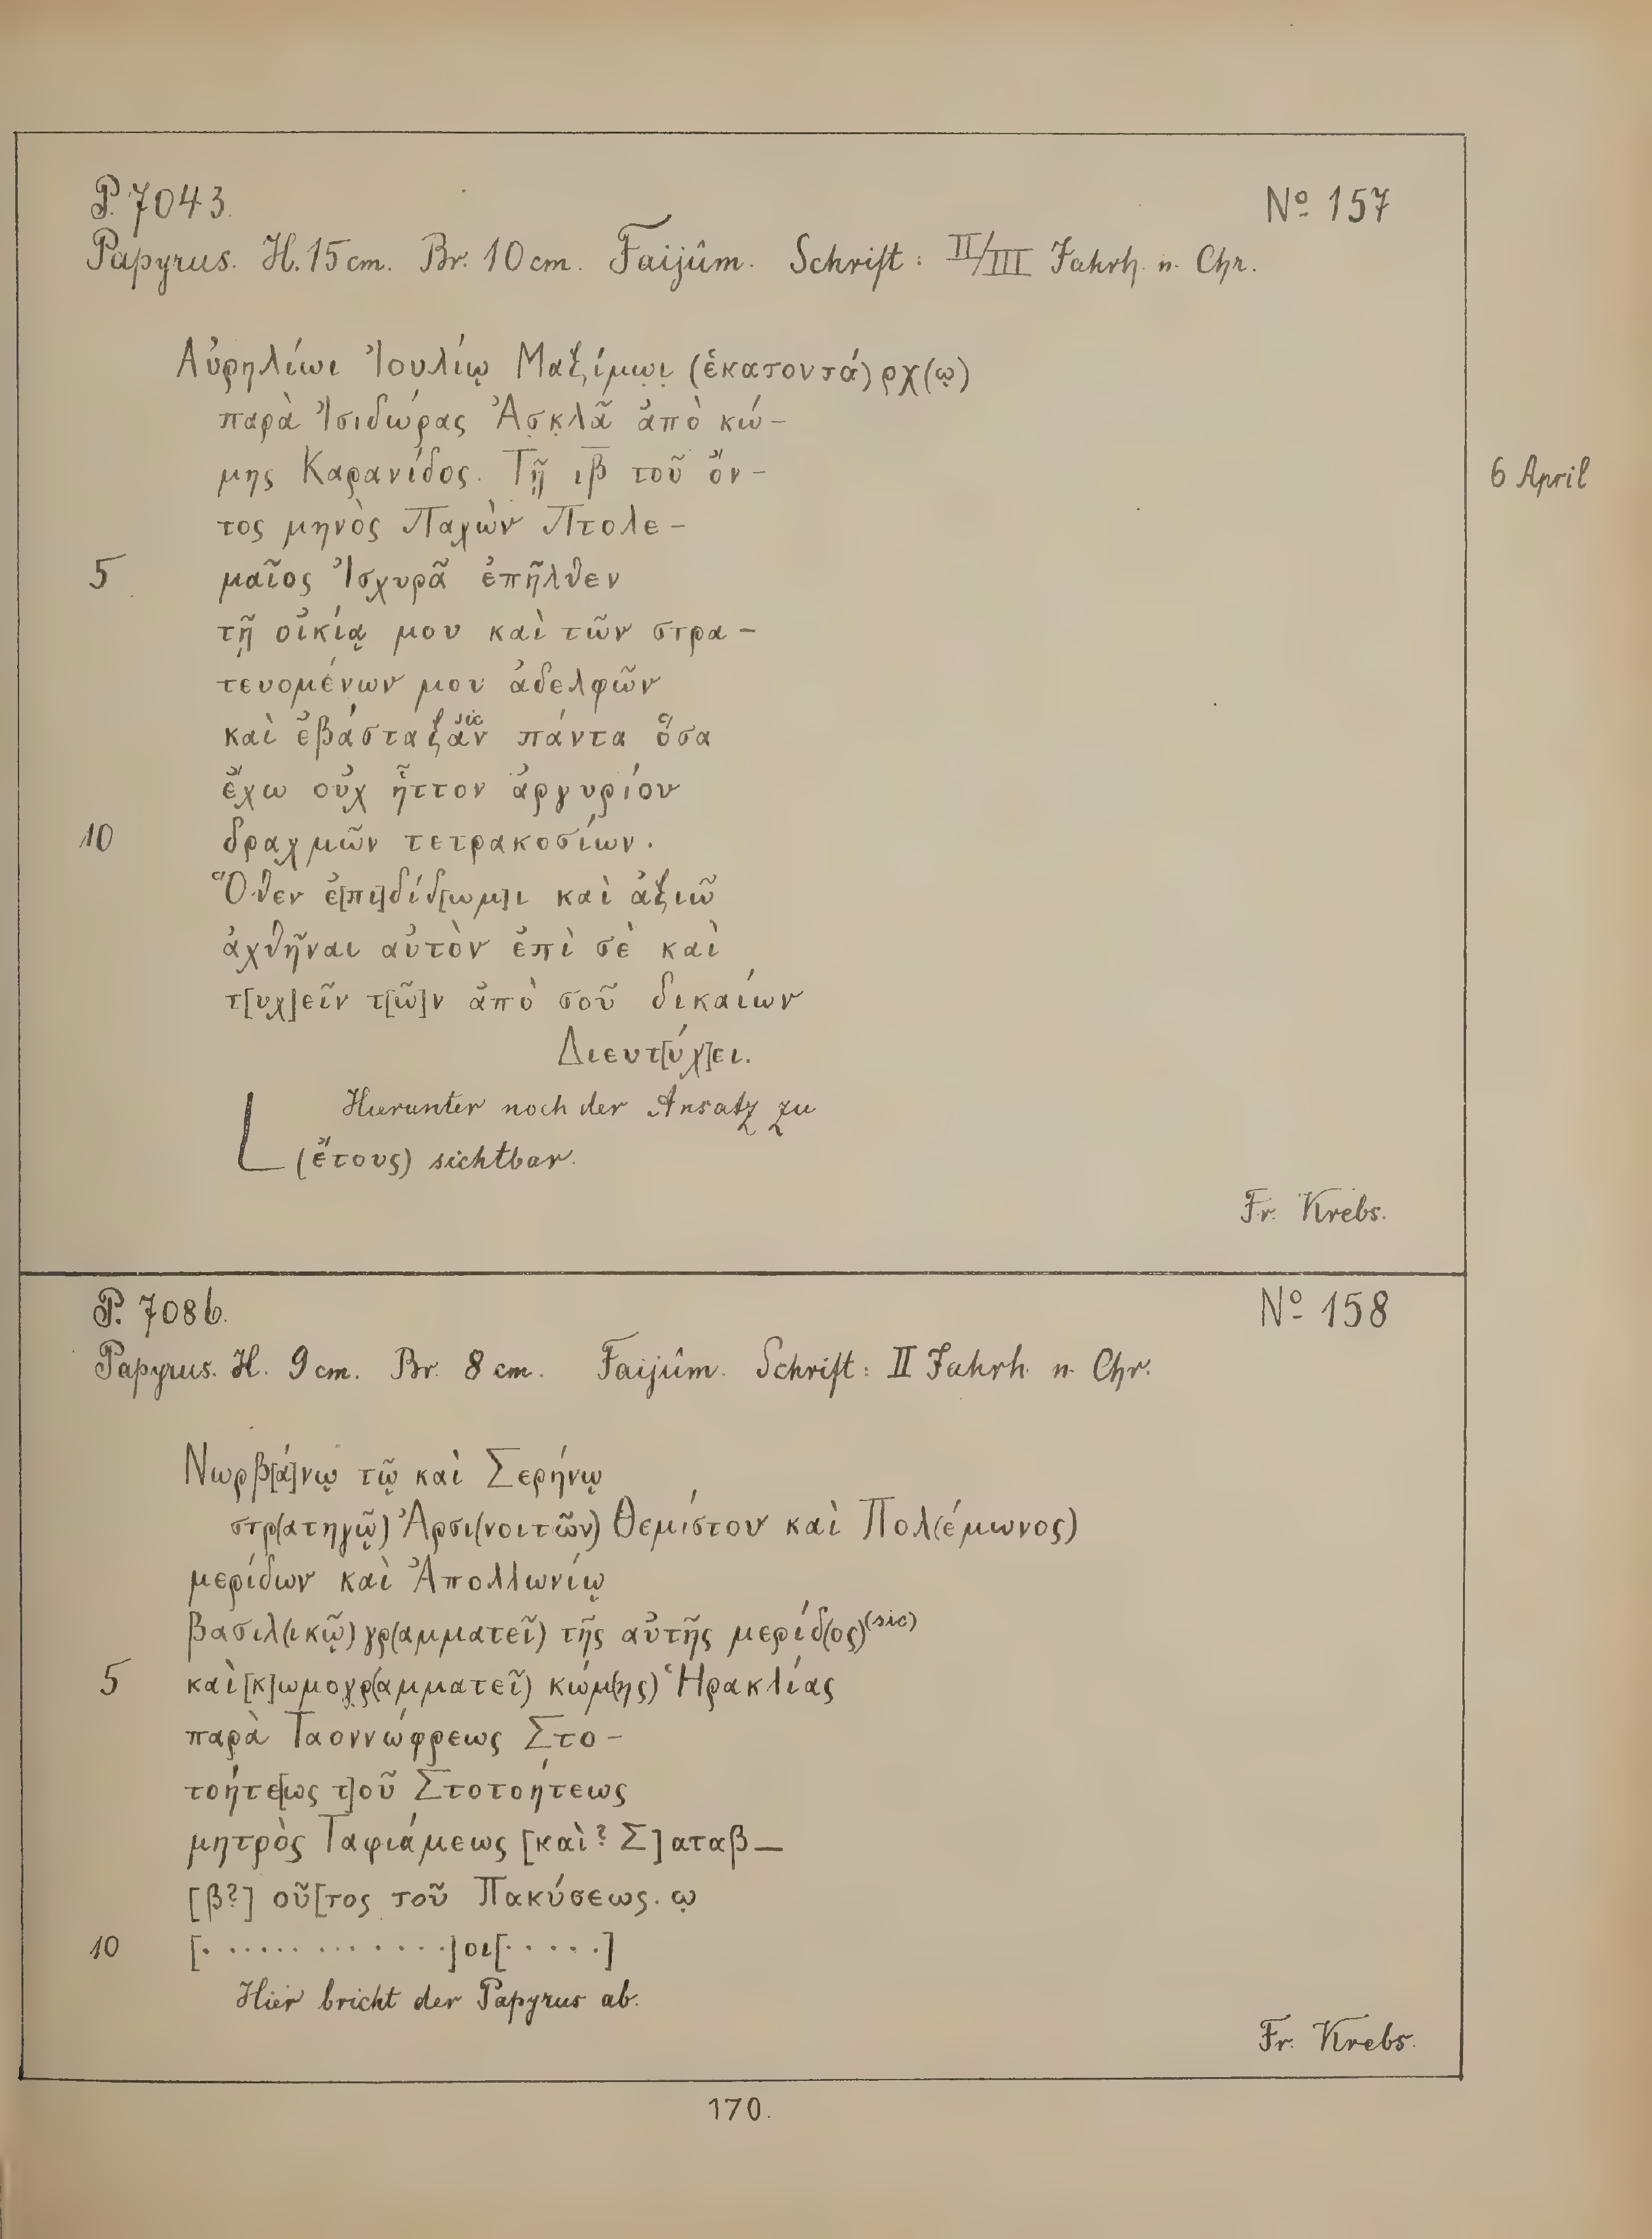 P. 7043.
No 157
Papyrus. H. 15 cm. Br. 10 cm. Faijûm. Schrift: II/III Jahrh. n. Chr.
Αὐρηλίωι Ἰουλίῳ Μαξίμωι (ἑκατοντά)ρχ(ῳ)
παρὰ Ἰσιδώρας Ἀσκλᾶ ἀπὸ κώ-
μης Καρανίδος. Τῇ ιβ τοῦ ὄν-
6 April
τος μηνὸς Παχὼν Πτολε-
5 μαῖος Ἰσχυρᾶ ἐπῆλθεν
τῇ οἰκίᾳ μου καὶ τῶν στρα-
τευομένων μου ἀδελφῶν
καὶ ἐβάσταξαν sic πάντα ὅσα
ἔχω οὐχ ἧττον ἀργυρίου
10 δραχμῶν τετρακοσίων.
Ὅθεν ἐ[πι]δίδ[ωμ]ι καὶ ἀξιῶ
ἀχθῆναι αὐτὸν ἐπὶ σὲ καὶ
τ[υχ]εῖν τ[ῶ]ν ἀπὸ σοῦ δικαίων
Διευτ[ύχ]ει.
Hierunter noch der Ansatz zu
L (ἔτους) sichtbar.
Fr. Krebs.
P. 7086.
No 158
Papyrus. H. 9 cm. Br. 8 cm. Faijûm. Schrift: II Jahrh. n. Chr.
Νωρβ[ά]νῳ τῷ καὶ Σερήνῳ
στρ(ατηγῷ) Ἀρσι(νοιτῶν) Θεμίστου καὶ Πολ(έμωνος)
μερίδων καὶ Ἀπολλωνίῳ
βασιλ(ικῷ) γρ(αμματεῖ) τῆς αὐτῆς μερίδ(ος) (sic)
5 καὶ [κ]ωμογρ(αμματεῖ) κώμ(ης) Ἡρακλίας
παρὰ Ταοννώφρεως Στο-
τοήτε[ως τ]οῦ Στοτοήτεως
μητρὸς Ταφιάμεως [καὶ? Σ]αταβ-
[β?] οῦ[τος τοῦ Πακύσεως. ῳ
10 [. . . . . . . . . . . . .]οι[. . . . .]
Hier bricht der Papyrus ab.
Fr. Krebs.
170.